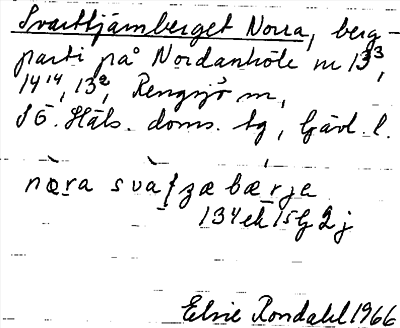 Svarttjärnberget Norra, berg-
parti på Nordanhöle nr 13³,
14¹⁴, 13², Rengsjö sn,
SÖ. Häls. doms. tg, Gävl. l.
nœra svaʈʒœbœrje
134ek 15b 2j
Elsie Rondahl 1966